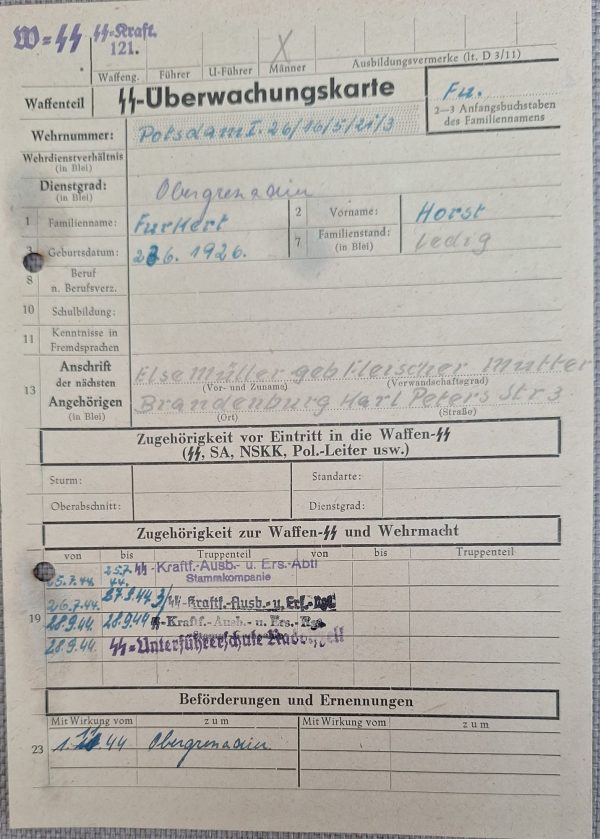 W=SS SS-Kraft.
121.
Waffeng. Führer U-Führer Männer Ausbildungsvermerke (lt. D 3/11)
X
Waffenteil SS-Überwachungskarte Fu.
2—3 Anfangsbuchstaben
des Familiennamens
Wehrnummer: Potsdam I. 26/16/5/21/3
Wehrdienstverhältnis
(in Blei)
Dienstgrad: Obergrenadier
(in Blei)
1 Familienname: Furkert 2 Vorname: Horst
3 Geburtsdatum: 6. 1926. 7 Familienstand: ledig
(in Blei)
8 Beruf
n. Berufsverz.
10 Schulbildung:
11 Kenntnisse in
Fremdsprachen
13 Anschrift
der nächsten
Angehörigen
(in Blei)
Else Müller geb Fleischer Mutter
(Vor- und Zuname) (Verwandschaftsgrad)
Brandenburg Karl Peters Str 3
(Ort) (Straße)
Zugehörigkeit vor Eintritt in die Waffen-SS
(SS, SA, NSKK, Pol.-Leiter usw.)
Sturm: Standarte:
Oberabschnitt: Dienstgrad:
Zugehörigkeit zur Waffen-SS und Wehrmacht
von bis Truppenteil von bis Truppenteil
25.7.44. 25.7.44. SS-Kraftf.-Ausb.- u. Ers.-Abtl
Stammkompanie
19
26.7.44. 27.9.44 3/SS-Kraftf.-Ausb.- u. Ers.-
28.9.44. 28.9.44 SS-Kraftf.-Ausb.- u. Ers.-
28.9.44. SS-Unterführerschule Radolfzell
Beförderungen und Ernennungen
Mit Wirkung vom zum Mit Wirkung vom zum
23 44 Obergrenadier